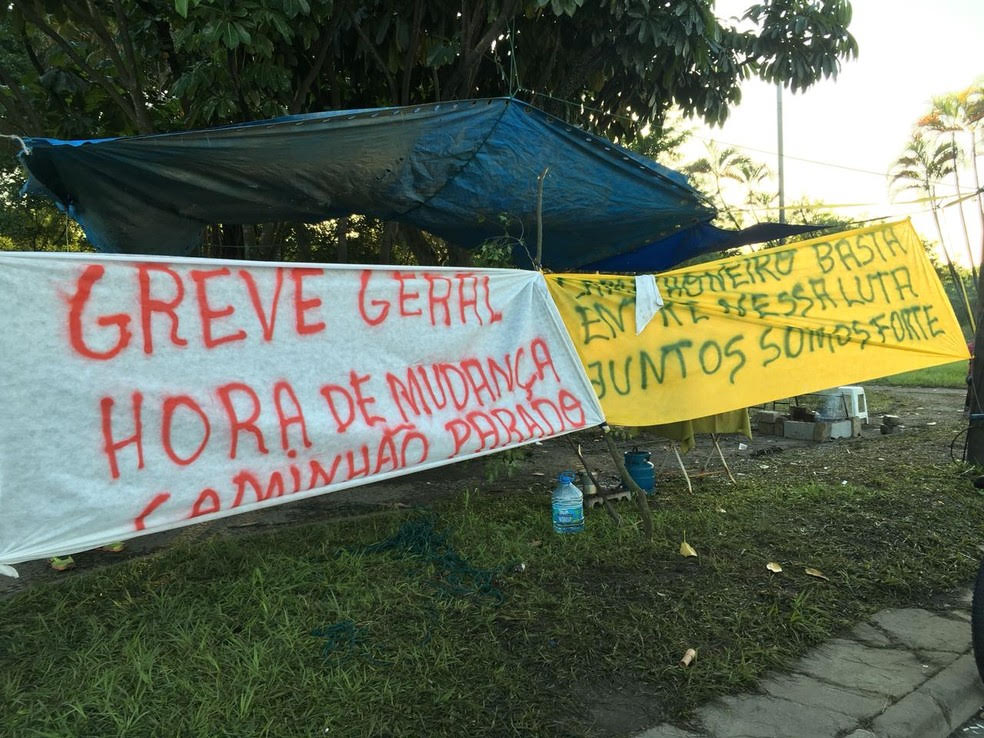 GREVE GERAL
HORA DE MUDANÇA
CAMINHÃO PARADO
CAMINHONEIRO BASTA
ENTRE NESSA LUTA
JUNTOS SOMOS FORTE